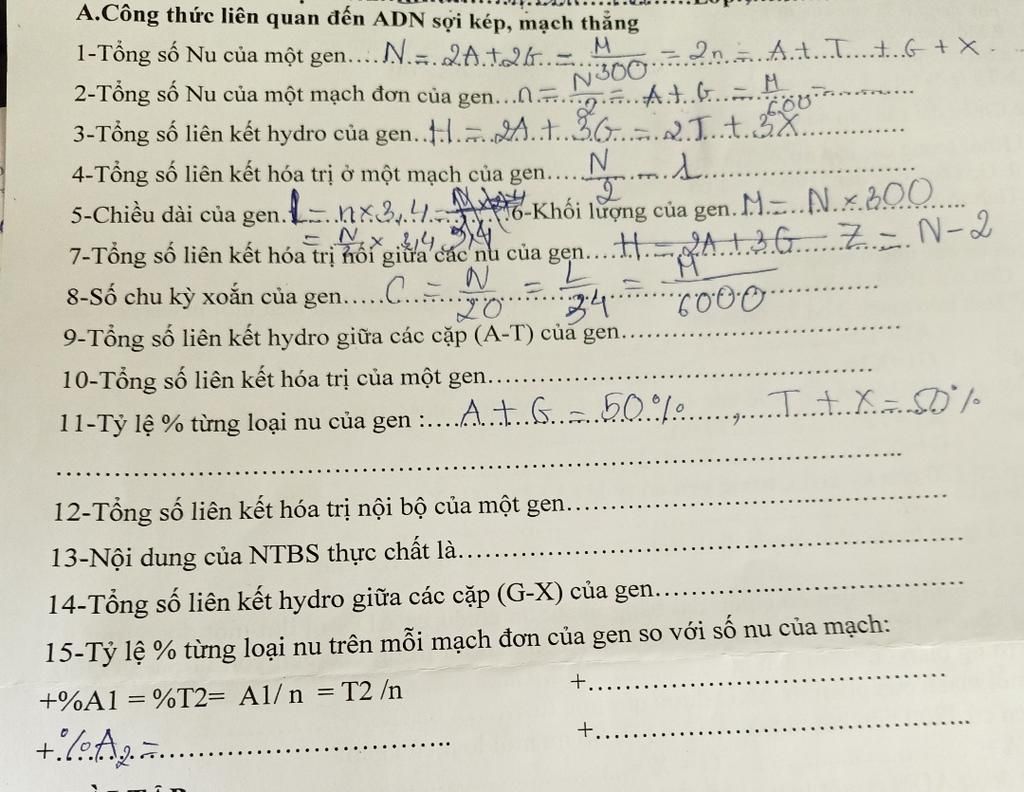 A.Công thức liên quan đến ADN sợi kép, mạch thẳng
1-Tổng số Nu của một gen.... N = 2A + 2G = M/300 = 2n = A + T + G + X
2-Tổng số Nu của một mạch đơn của gen... n = N/2 = A + G = M/600 = ............
3-Tổng số liên kết hydro của gen.. H = 2A + 3G = 2T + 3X .............
4-Tổng số liên kết hóa trị ở một mạch của gen.... N/2 - 1 ..............
5-Chiều dài của gen. L = n x 3,4 = 6-Khối lượng của gen. M = N x 300
= N/2 x 3,4
7-Tổng số liên kết hóa trị nối giữa các nu của gen.... H = 2A + 3G Z = N - 2
8-Số chu kỳ xoắn của gen..... C = N/20 = L/34 = M/6000
9-Tổng số liên kết hydro giữa các cặp (A-T) của gen....................................
10-Tổng số liên kết hóa trị của một gen..................................................
11-Tỷ lệ % từng loại nu của gen :.... A + G = 50% ....., T + X = 50%
..........................................................................................
12-Tổng số liên kết hóa trị nội bộ của một gen..................................................
13-Nội dung của NTBS thực chất là..................................................................
14-Tổng số liên kết hydro giữa các cặp (G-X) của gen........................................
15-Tỷ lệ % từng loại nu trên mỗi mạch đơn của gen so với số nu của mạch:
+%A1 = %T2= A1/ n = T2 /n +..............................................
+ %A2 = .................................... +................................................